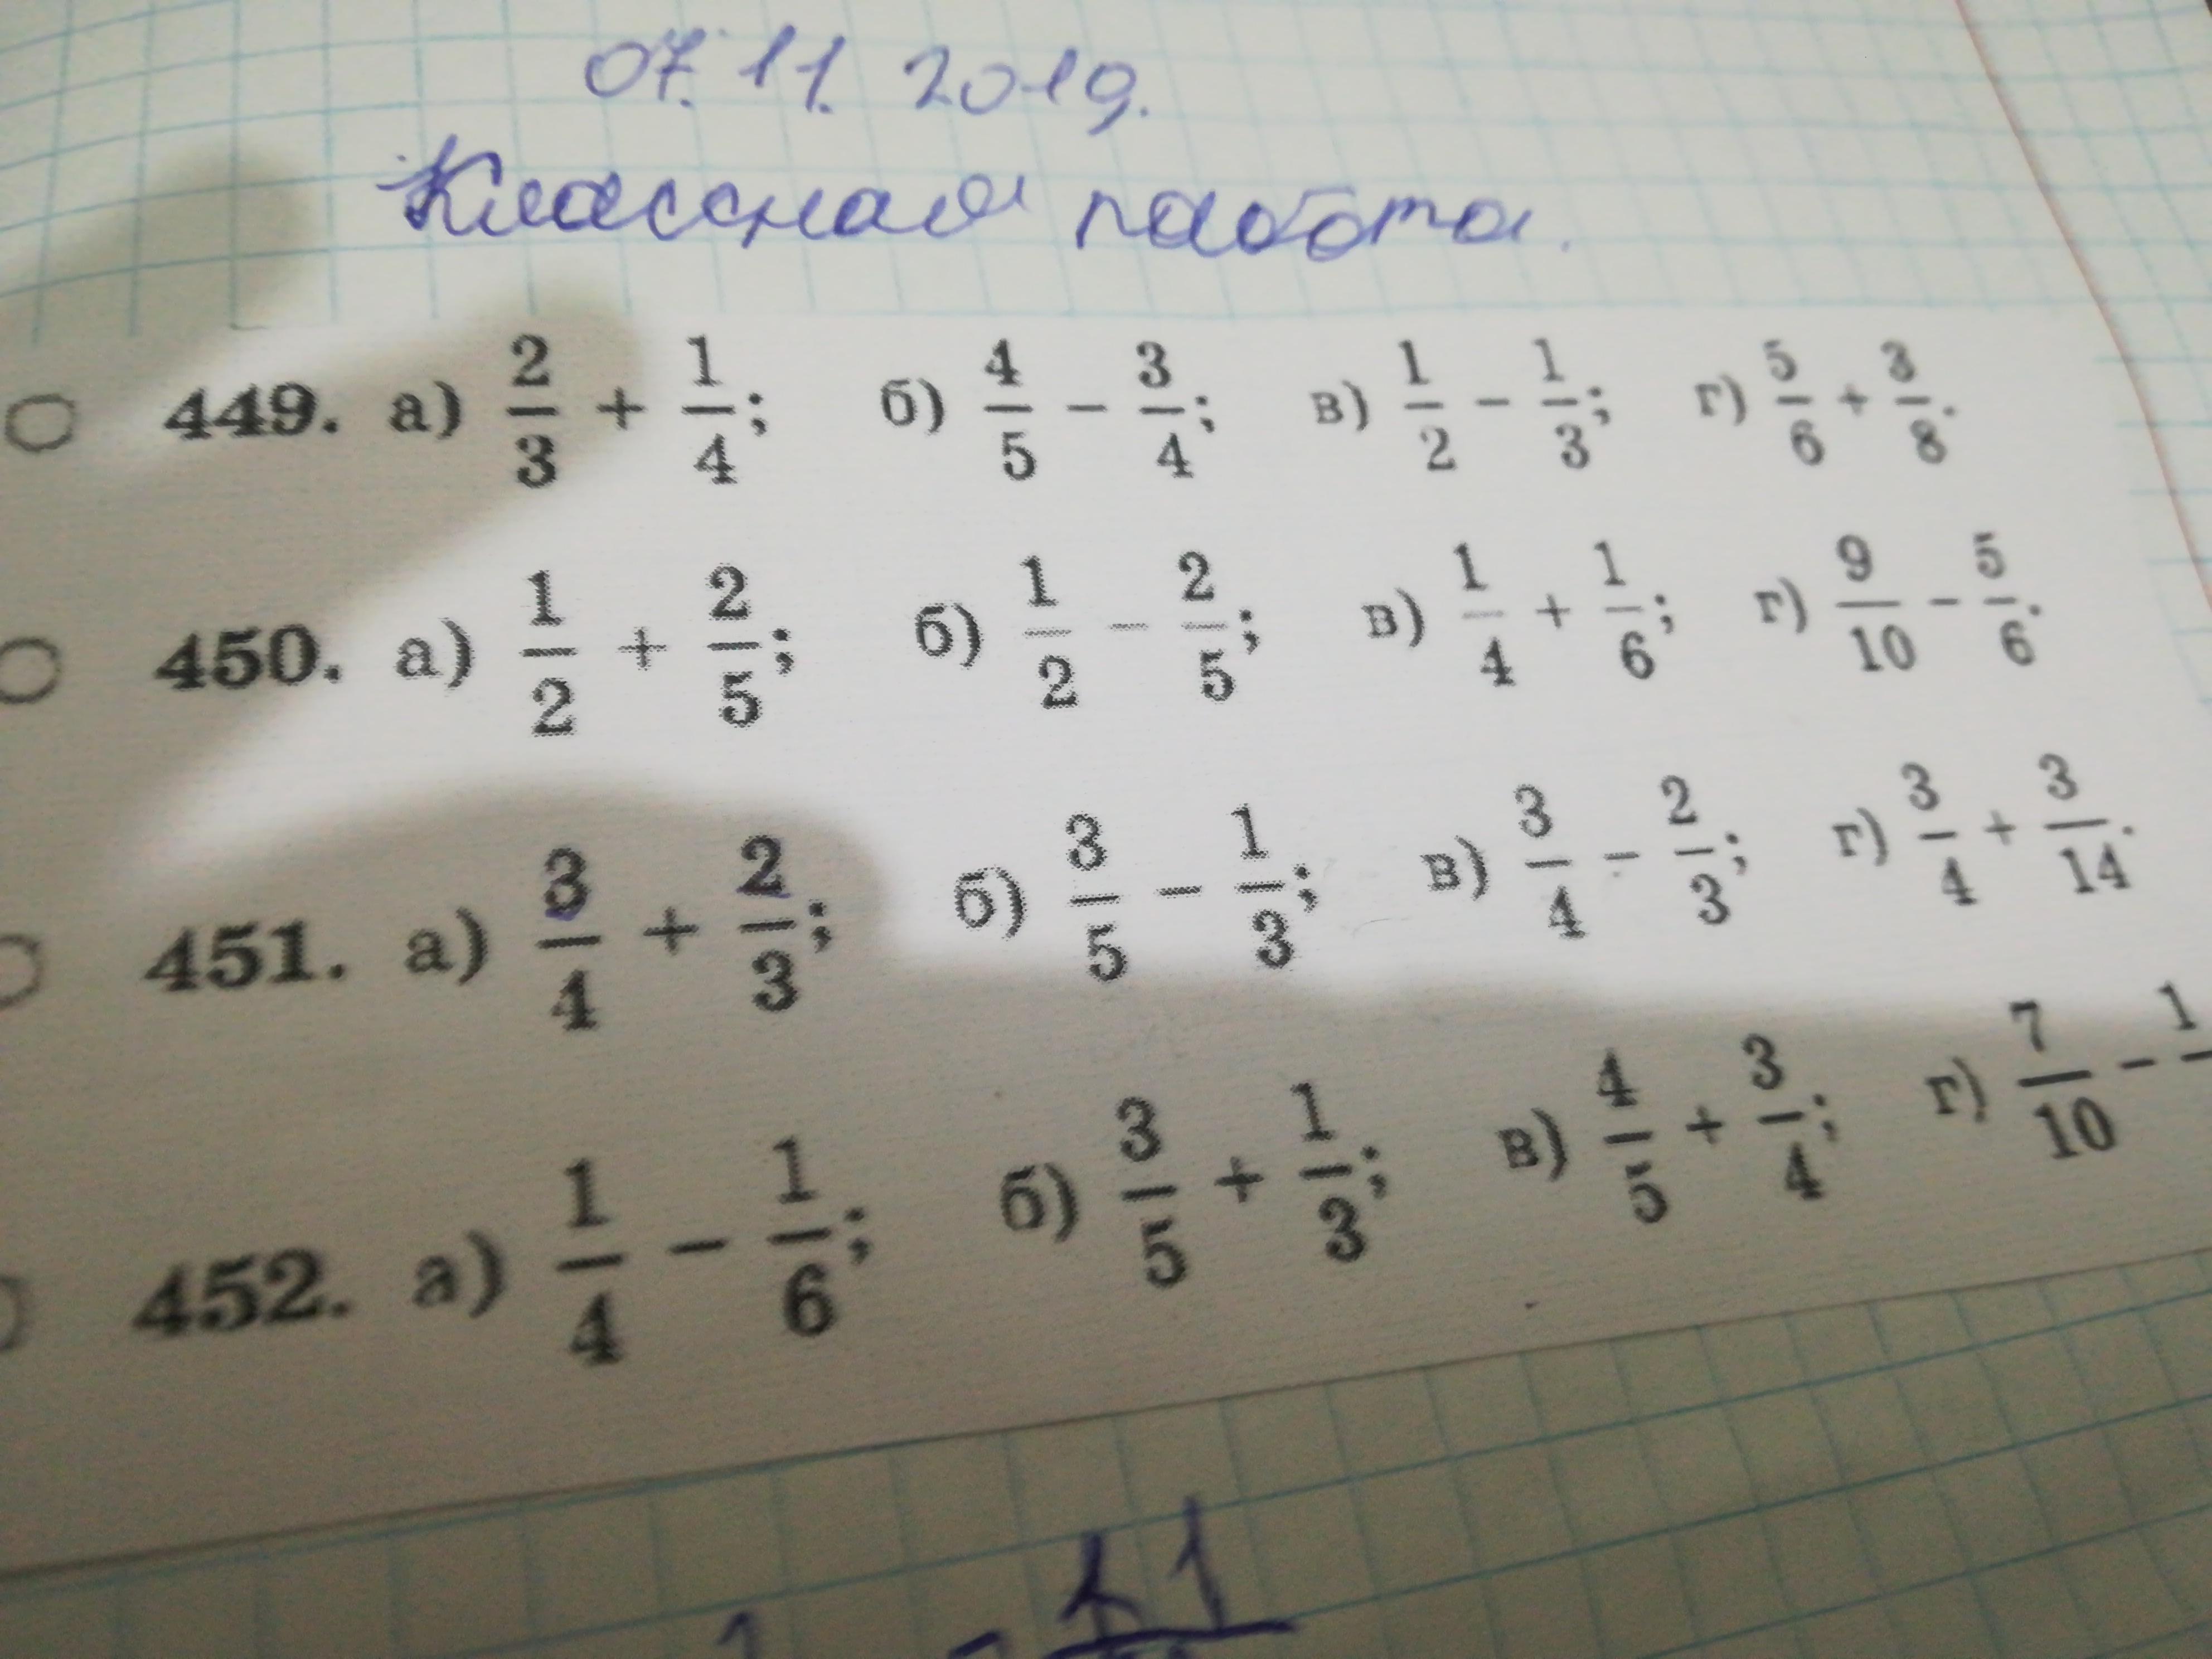 07.11.2019.
Классная работа.
449. а) 2/3 + 1/4; б) 4/5 − 3/4; в) 1/2 − 1/3; г) 5/6 + 3/8.
450. а) 1/2 + 2/5; б) 1/2 − 2/5; в) 1/4 + 1/6; г) 9/10 − 5/6.
451. а) 3/4 + 2/3; б) 3/5 − 1/3; в) 3/4 − 2/3; г) 3/4 + 3/14.
452. а) 1/4 − 1/6; б) 3/5 + 1/3; в) 4/5 + 3/4; г) 7/10 − 1/